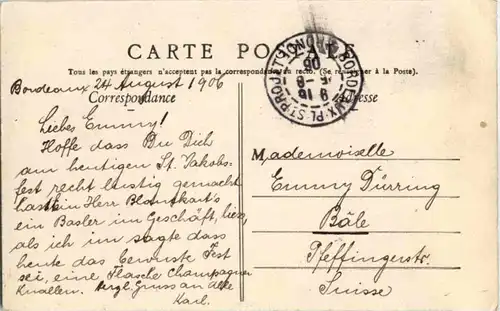 CARTE POSTALE
Tous les pays étrangers n'acceptent pas la correspondance au recto. (Se renseigner à la Poste).
Bordeaux 24 August 1906
Correspondance
Adresse
BORDEAUX-PL. ST PROJET
GIRONDE
Liebes Emmy!
Hoffe dass Du Dich
am heutigen St. Jakobs-
fest recht lustig gemacht
hast. Ein Herr Blankart's
ein Basler im Geschäft, liess,
als ich im sagte dass
heute das bewuste Fest
sei, eine Flasche Champagner
Knallen. Hrzl. Gruss an Alle
Karl.
Mademoiselle
Emmy Dürring
Bâle
Pfeffingerstr.
Suisse